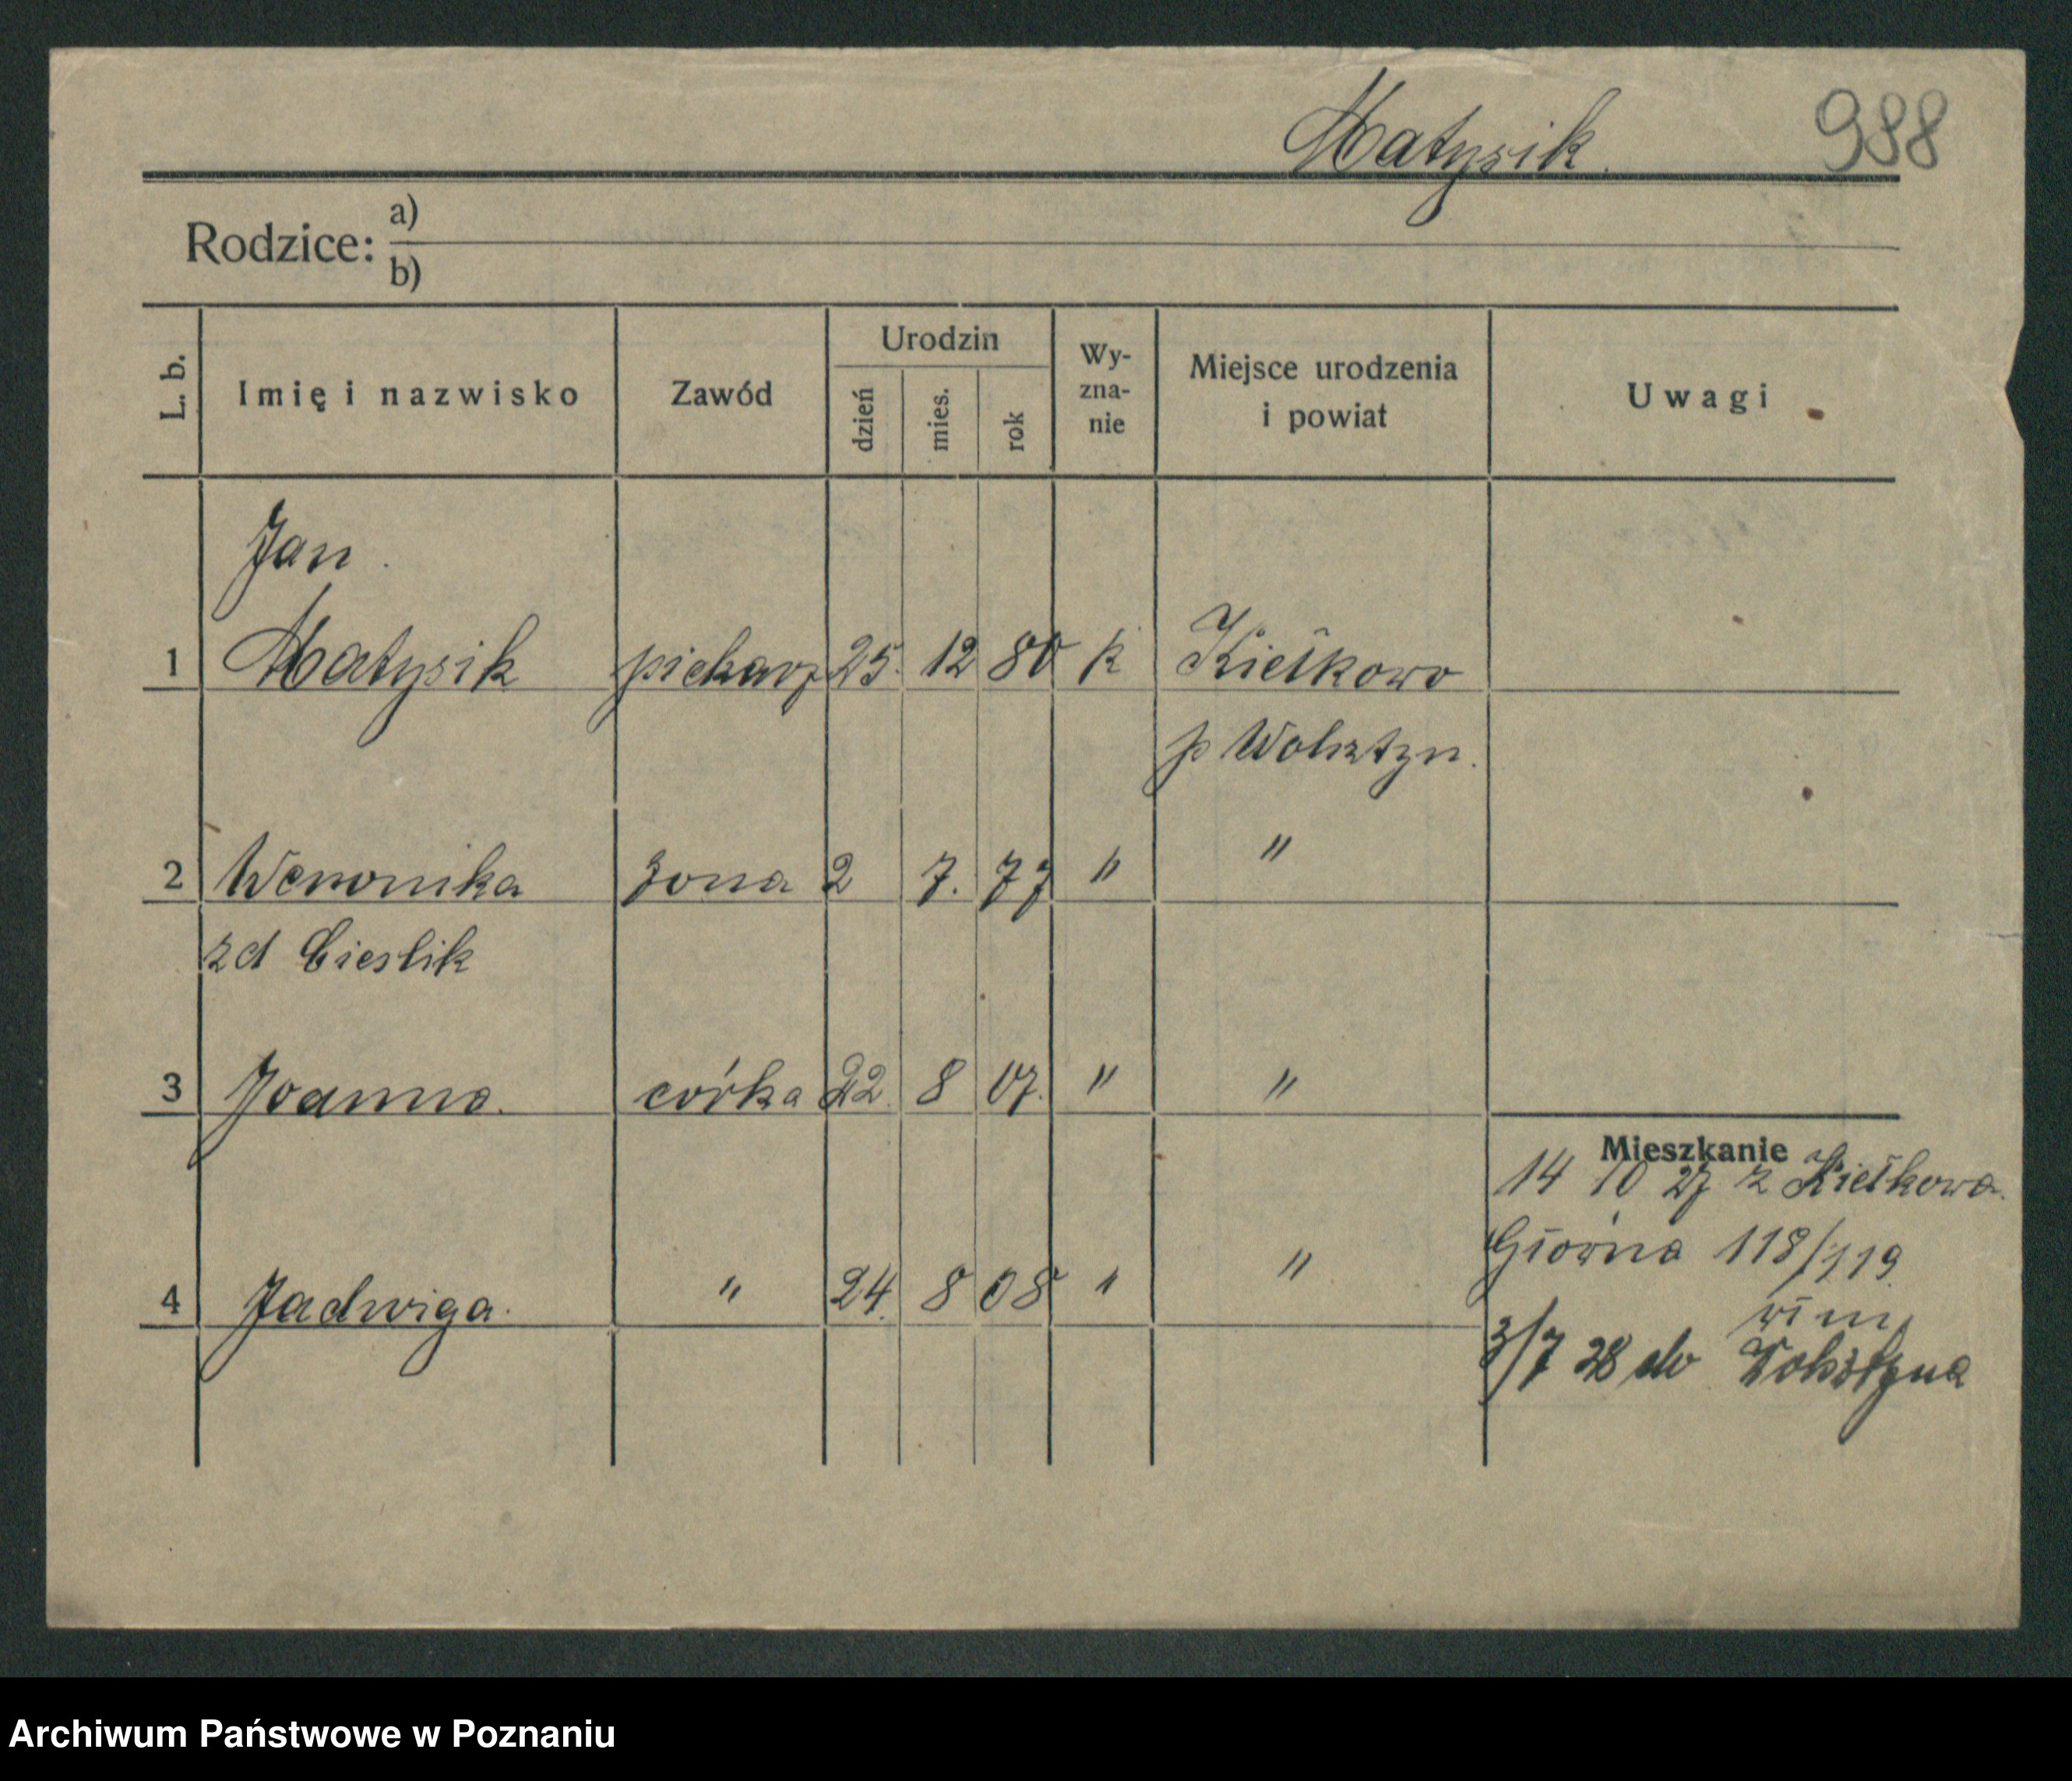 Matysik. 988
Rodzice: a)
b)
L. b. Imię i nazwisko Zawód Urodzin dzień mies. rok Wy-zna-nie Miejsce urodzenia i powiat Uwagi
Jan.
1 Matysik piekarz 25. 12 80 k Kiełkowo
p Wolsztyn.
2 Weronika żona 2 7. 77 " "
zd Cieslik
3 Joanna. córka 22 8 07. " "
Mieszkanie
14 10 27 z Kiełkowa.
Głowna 118/119
4 Jadwiga. " 24. 8 08 " "
wł m
3/7 28 do Wolsztyna
Archiwum Państwowe w Poznaniu